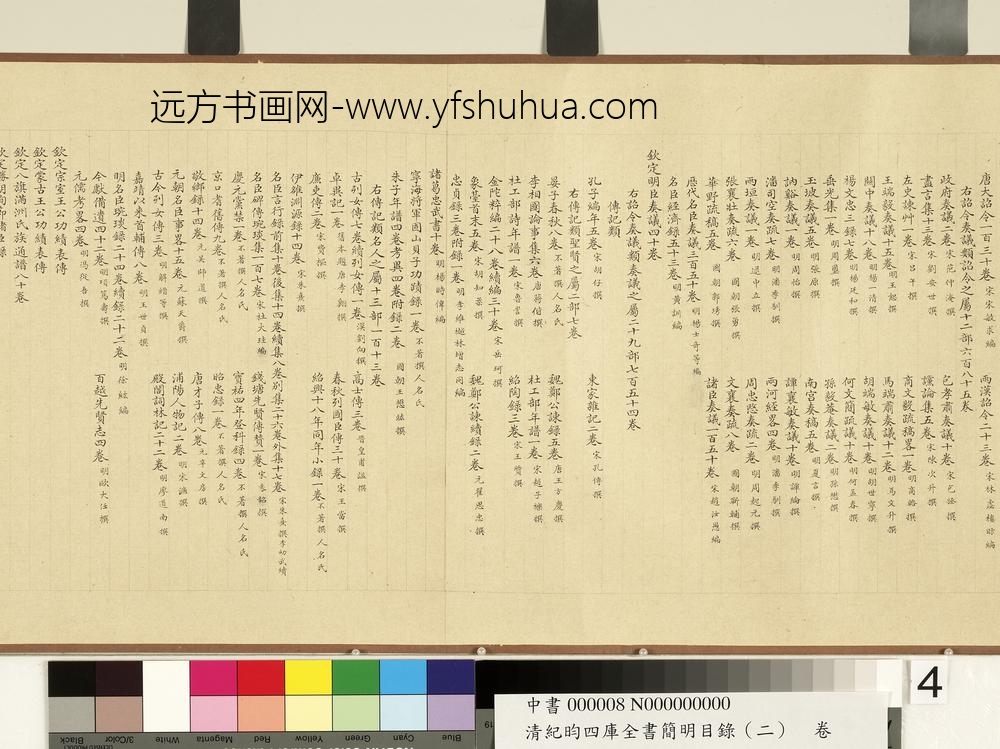 远方书画网-www.yfshuhua.com
唐大詔令一百三十卷 宋宋敏求編 兩漢詔令二十三卷 宋林虙樓昉編
右詔令奏議類詔令之屬十二部六百八十五卷
政府奏議二卷 宋范仲淹撰 包孝肅奏議十卷 宋包拯撰
盡言集十三卷 宋劉安世撰 讜論集五卷 宋陳次升撰
左史諫艸一卷 宋呂午撰 商文毅疏稿畧一卷 明商輅撰
王端毅奏議十五卷 明王恕撰 馬端肅奏議十二卷 明馬文升撰
關中奏議十八卷 明楊一清撰 胡端敏奏議十卷 明胡世寧撰
楊文忠三錄七卷 明楊廷和撰 何文簡疏議十卷 明何孟春撰
垂光集一卷 明周璽撰 孫毅菴奏議二卷 明孫懋撰
玉坡奏議五卷 明張原撰 南宮奏稿五卷 明夏言撰
訥谿奏議一卷 明周怡撰 譚襄敏奏議十卷 明譚綸撰
潘司空奏疏七卷 明潘季馴撰 兩河經畧四卷 明潘季馴撰
兩垣奏議一卷 明逯中立撰 周忠愍奏疏二卷 明周起元撰
張襄壯奏疏六卷 國朝張勇撰 文襄奏疏八卷 國朝靳輔撰
華野疏稿五卷 國朝郭琇撰 諸臣奏議一百五十卷 宋趙汝愚編
歷代名臣奏議三百五十卷 明楊士奇等編
名臣經濟錄五十三卷 明黃訓編
欽定明臣奏議四十卷
右詔令奏議類奏議之屬二十九部七百五十四卷
傳記類
孔子編年五卷 宋胡仔撰 東家雜記二卷 宋孔傳撰
右傳記類聖賢之屬二部七卷
晏子春秋八卷 不著撰人名氏 魏鄭公諫錄五卷 唐王方慶撰
李相國論事集六卷 唐蔣偕撰 杜工部年譜一卷 宋趙子櫟撰
杜工部詩年譜一卷 宋魯訔撰 紹陶錄三卷 宋王質撰
金陀粹編二十八卷續編三十卷 宋岳珂撰
象臺首末五卷 宋胡知柔撰 魏鄭公諫續錄二卷 元翟思忠撰
忠貞錄三卷附錄一卷 明李維樾林增志同編
諸葛忠武書十卷 明楊時偉編
寧海將軍固山貝子功蹟錄一卷 不著撰人名氏
朱子年譜四卷考異四卷附錄二卷 國朝王懋竑撰
右傳記類名人之屬十三部一百十三卷
古列女傳七卷續列女傳一卷 漢劉向撰 高士傳三卷 晉皇甫謐撰
卓異記一卷 舊本題唐李翱撰 春秋列國臣傳三十卷 宋王當撰
廉吏傳二卷 宋費樞撰 紹興十八年同年小錄一卷 不著撰人名氏
伊雒淵源錄十四卷 宋朱熹撰
名臣言行錄前集十卷後集十四卷續集八卷別集二十六卷外集十七卷 宋朱熹撰李幼武續
名臣碑傳琬琰集一百七卷 宋杜大珪編 錢塘先賢傳贊一卷 宋袁韶撰
慶元黨禁一卷 不著撰人名氏 寶祐四年登科錄四卷 不著撰人名氏
京口耆舊傳九卷 不著撰人名氏 昭忠錄一卷 不著撰人名氏
敬鄉錄十四卷 元吳師道撰 唐才子傳八卷 元辛文房撰
元朝名臣事畧十五卷 元蘇天爵撰 浦陽人物記二卷 明宋濂撰
古今列女傳三卷 明解縉等撰 殿閣詞林記二十二卷 明廖道南撰
嘉靖以來首輔傳八卷 明王世貞撰
明名臣琬琰錄二十四卷續錄二十二卷 明徐紘編
今獻備遺四十二卷 明項篤壽撰 百越先賢志四卷 明歐大任撰
元儒考畧四卷 明馮從吾撰
欽定宗室王公功績表傳
欽定蒙古王公功績表傳
欽定八旗滿洲氏族通譜八十卷
欽定勝朝殉節諸臣錄
4
中書 000008 N000000000
清紀昀四庫全書簡明目錄（二） 卷
19
Black
3/Color
White
Magenta
Red
Yellow
Green
Cyan
Blue